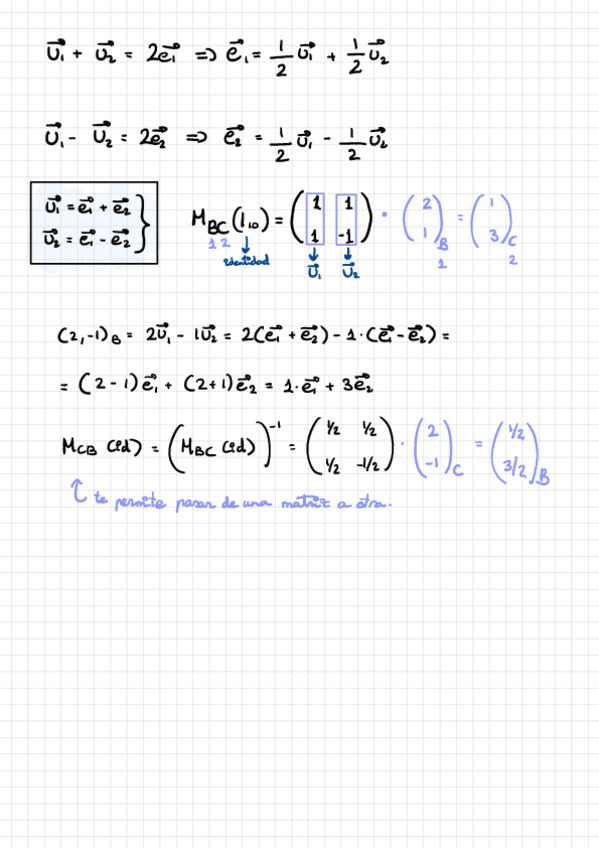 u⃗₁ + u⃗₂ = 2e⃗₁ => e⃗₁ = 1/2 u⃗₁ + 1/2 u⃗₂
u⃗₁ - u⃗₂ = 2e⃗₂ => e⃗₂ = 1/2 u⃗₁ - 1/2 u⃗₂
u⃗₁ = e⃗₁ + e⃗₂
u⃗₂ = e⃗₁ - e⃗₂ }
M_BC (1_ID) = (1 1; 1 -1) · (2; 1)_B = (1; 3)_C
1 2 ↓ identidad ↓ u⃗₁ ↓ u⃗₂ 1 2
(2,-1)_B = 2u⃗₁ - 1u⃗₂ = 2(e⃗₁ + e⃗₂) - 1·(e⃗₁ - e⃗₂) =
= (2-1)e⃗₁ + (2+1)e⃗₂ = 1·e⃗₁ + 3e⃗₂
M_CB (id) = (M_BC (id))⁻¹ = (1/2 1/2; 1/2 -1/2) · (2; -1)_C = (1/2; 3/2)_B
te permite pasar de una matriz a otra.